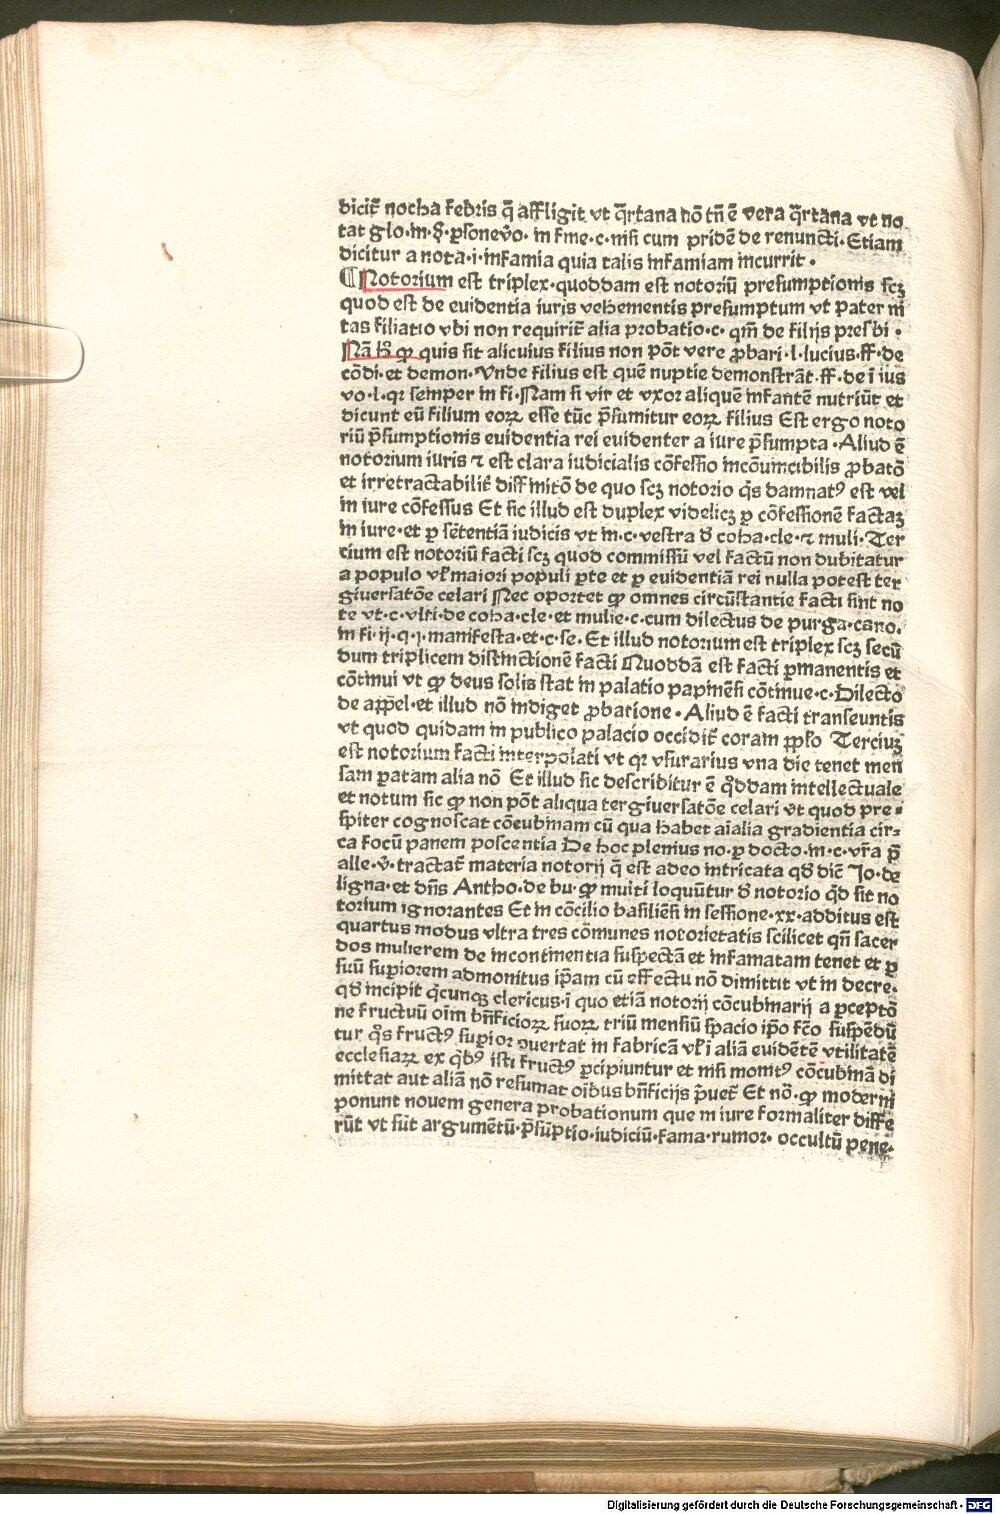 dicit᷑ nocha febris q̄ affligit vt q̄rtana nō tn̄ ē vera q̄rtana vt no
tat glo·in·§·ꝑsonev̓o· in fine·c·nisi cum pridē de renuncti·Etiam
dicitur a nota·i·infamia quia talis infamiam incurrit·
¶Notorium est triplex·quoddam est notoriū presumptionis scꝫ
quod est de euidentia iuris vehementis presumptum vt pater ni
tas filiatio vbi non requirit᷑ alia probatio·c· qm̄ de filijs presbi·
Nā h̓ ꝙ quis sit alicuius filius non pōt vere ꝓbari·l·lucius·ff·de
cōdi·et demon·Vnde filius est quē nuptie demonstrāt·ff·de ī ius
vo·l·qꝛ semper in fi·Nam si vir et vxoꝛ aliquē infantē nutriūt et
dicunt eū filium eoꝝ esse tūc p̄sumitur eoꝝ filius Est ergo noto
riū p̄sumptionis euidentia rei euidenter a iure p̄sumpta·Aliud ē
notorium iuris ⁊ est clara iudicialis cōfessio incōuincibilis ꝓbatō
et irretractabilit᷑ diffinitō de quo scꝫ notorio q̄s damnatꝰ est vel
in iure cōfessus Et sic illud est duplex videlicꝫ ꝑ cōfessionē factaꝫ
in iure·et ꝑ sētentiā iudicis vt in·c·vestra d̓ coha·cle·⁊ muli·Ter
cium est notoriū facti scꝫ quod commissū vel factū non dubitatur
a populo vl̓ maiori populi ꝑte et ꝑ euidentiā rei nulla potest ter
giuersatōe celari Nec oportet ꝙ omnes circūstantie facti sint no
te vt·c·vlti·de coha·cle·et mulie·c·cum dilectus de purga·cano·
in fi·ij·q·ꝛ·manifesta·et·c·se·Et illud notorium est triplex scꝫ secū
dum triplicem distinctionē facti Nuoddā est facti ꝑmanentis et
cōtinui vt ꝙ deus solis stat in palatio papinēsi cōtinue·c·Dilecto
de aꝑpel·et illud nō indiget ꝓbatione·Aliud ē facti transeuntis
vt quod quidam in publico palacio occidit᷑ coram ꝓpl̓o Terciuꝫ
est notorium facti interpolati vt qꝛ vsurarius vna die tenet men
sam ꝑatam alia nō Et illud sic describitur ē q̊ddam intellectuale
et notum sic ꝙ non pōt aliqua tergiuersatōe celari vt quod pre⸗
spiter cognoscat cōcubinam cū qua habet aīalia gradientia cir⸗
ca focū panem poscentia De hoc plenius no·ꝑ docto·in·c·vr̄a p̄
alle·v̓·tractat᷑ materia notorij q̄ est adeo intricata qd̓ dic̄ Jo·de
ligna·et dn̄s Antho·de bu·ꝙ multi loquūtur d̓ notorio q̊d sit no
torium ignorantes Et in cōcilio basiliēsi in sessione·xx·additus est
quartus modus vltra tres cōmunes notorietatis scilicet qn̄ sacer
dos mulierem de incontinentia suspectā et infamatam tenet et ꝑ
suū supiorem admonitus ip̄am cū effectu nō dimittit vt in decre·
qd̓ incipit q̄cunqꝫ clericus·ī quo etiā notorij cōcubinarij a ꝑceptō
ne fructuū oīm bn̄ficioꝝ suoꝝ triū mensiū spacio ip̄o fc̄o suspēdū
tur q̊s fructꝰ supioꝛ ꝯuertat in fabricā vl̓ ī aliā euidētē vtilitatē
ecclesiaꝝ ex q̊bꝰ isti fructꝰ ꝑcipiuntur et nisi monitꝰ cōcubinā di
mittat aut aliā nō resumat oībus bn̄ficijs p̄uet᷑ Et nō·ꝙ moderni
ponunt nouem genera probationum que in iure formaliter diffe
rūt vt sūt argumētū·p̄sūptio·iudiciū·fama·rumoꝛ· occultū pene·
Digitalisierung gefördert durch die Deutsche Forschungsgemeinschaft - DFG